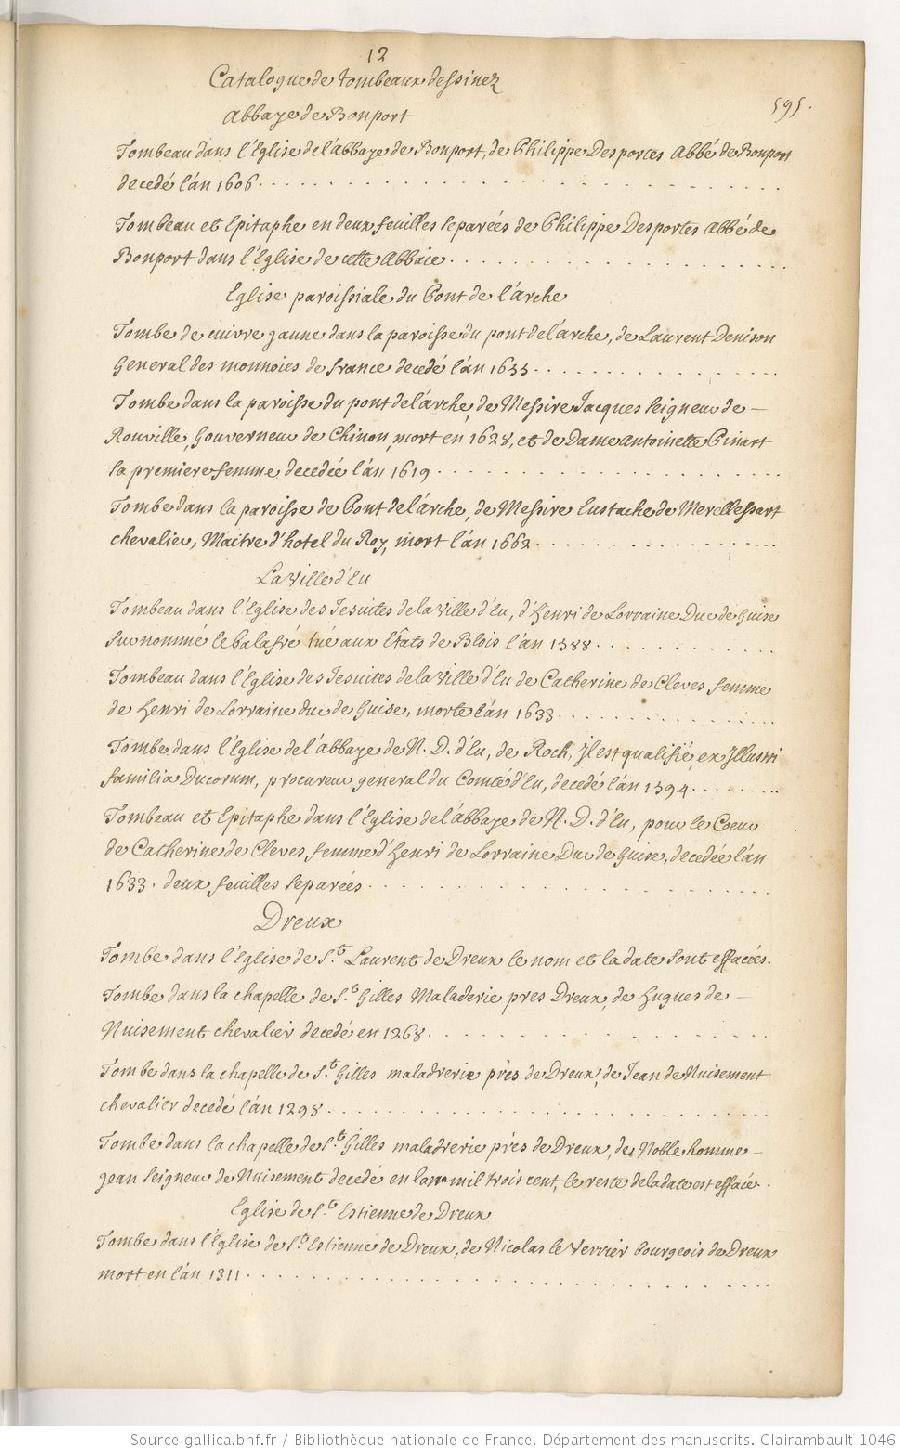 12
Catalogue de tombeaux dessinez
595.
Abbaye de Bonport
Tombeau dans l'Eglise de l'abbaye de Bonport, de Philippe Desportes Abbé de Bonport
decedé l'an 1606
Tombeau et Epitaphe en deux feuilles separées de Philippe Desportes Abbé de
Bonport dans l'Eglise de cette Abbaie
Eglise paroissiale du Pont de l'arche
Tombe de cuivre jaune dans la paroisse du pont de l'arche, de Laurent Denison
General des monnoies de france decedé l'an 1655
Tombe dans la paroisse du pont de l'arche, de Messire Jacques seigneur de —
Rouville, Gouverneur de Chinon, mort en 1628, et de Dame Antoinette Pinart
sa premiere femme decedée l'an 1619
Tombe dans la paroisse de Pont de l'arche, de Messire Eustache de Merellessart
chevalier, Maitre d'hotel du Roy, mort l'an 1662
La Ville d'Eu
Tombeau dans l'Eglise des Jesuites de la Ville d'Eu, d'Henri de Lorraine Duc de Guise
surnommé le balafré tué aux Etats de Blois l'an 1588
Tombeau dans l'Eglise des Jesuites de la Ville d'Eu de Catherine de Cleves femme
de Henri de Lorraine duc de Guise, morte l'an 1633
Tombe dans l'Eglise de l'abbaye de N. D. d'Eu, de Roch, il est qualifié, ex Illustri
familia Ducorum, procureur general du Comté d'Eu, decedé l'an 1394
Tombeau et Epitaphe dans l'Eglise de l'abbaye de N. D. d'Eu, pour le Coeur
de Catherine de Cleves femme d'Henri de Lorraine Duc de Guise, decedée l'an
1633. deux feuilles separées
Dreux
Tombe dans l'Eglise de St. Laurent de Dreux le nom et la date sont effacées.
Tombe dans la chapelle de St. Gilles Maladerie pres Dreux, de Hugues de —
Nuisement chevalier decedé en 1268
Tombe dans la chapelle de St. Gilles maladrerie près de Dreux, de Jean de Nuisement
chevalier decedé l'an 1298
Tombe dans la chapelle de St. Gilles maladrerie près de Dreux, de Noble homme —
jean seigneur de Nuisement decedé en l'an mil trois cent, le reste de la date est effacé.
Eglise de St. Estienne de Dreux
Tombe dans l'Eglise de St. Estienne de Dreux, de Nicolas le Verrier bourgeois de Dreux
mort en l'an 1311
Source gallica.bnf.fr / Bibliothèque nationale de France. Département des manuscrits. Clairambault 1046